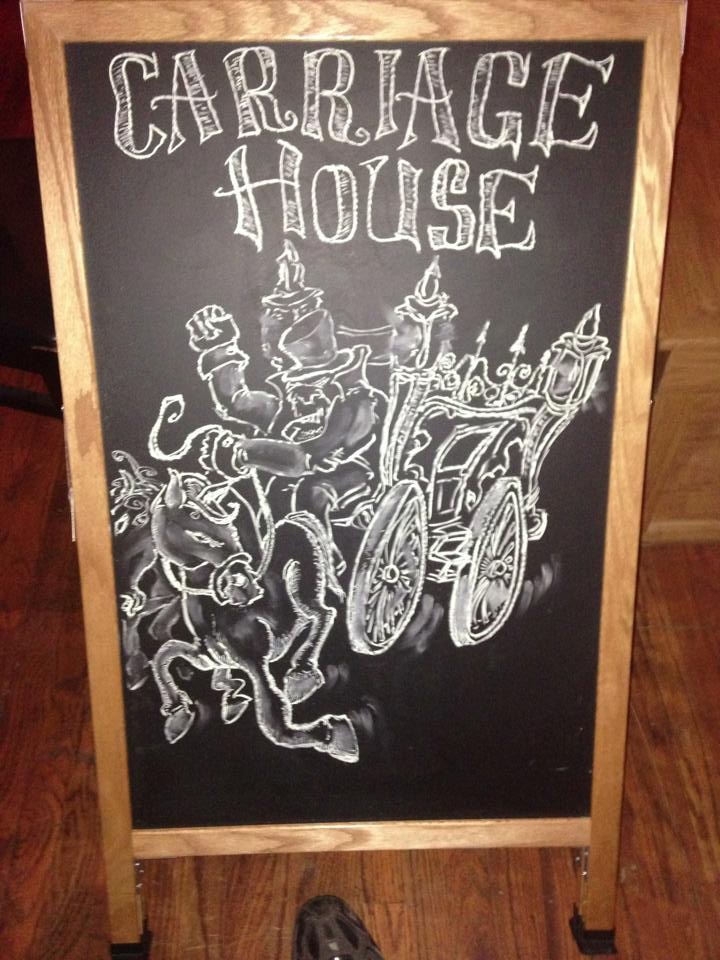 CARRIAGE
HOUSE